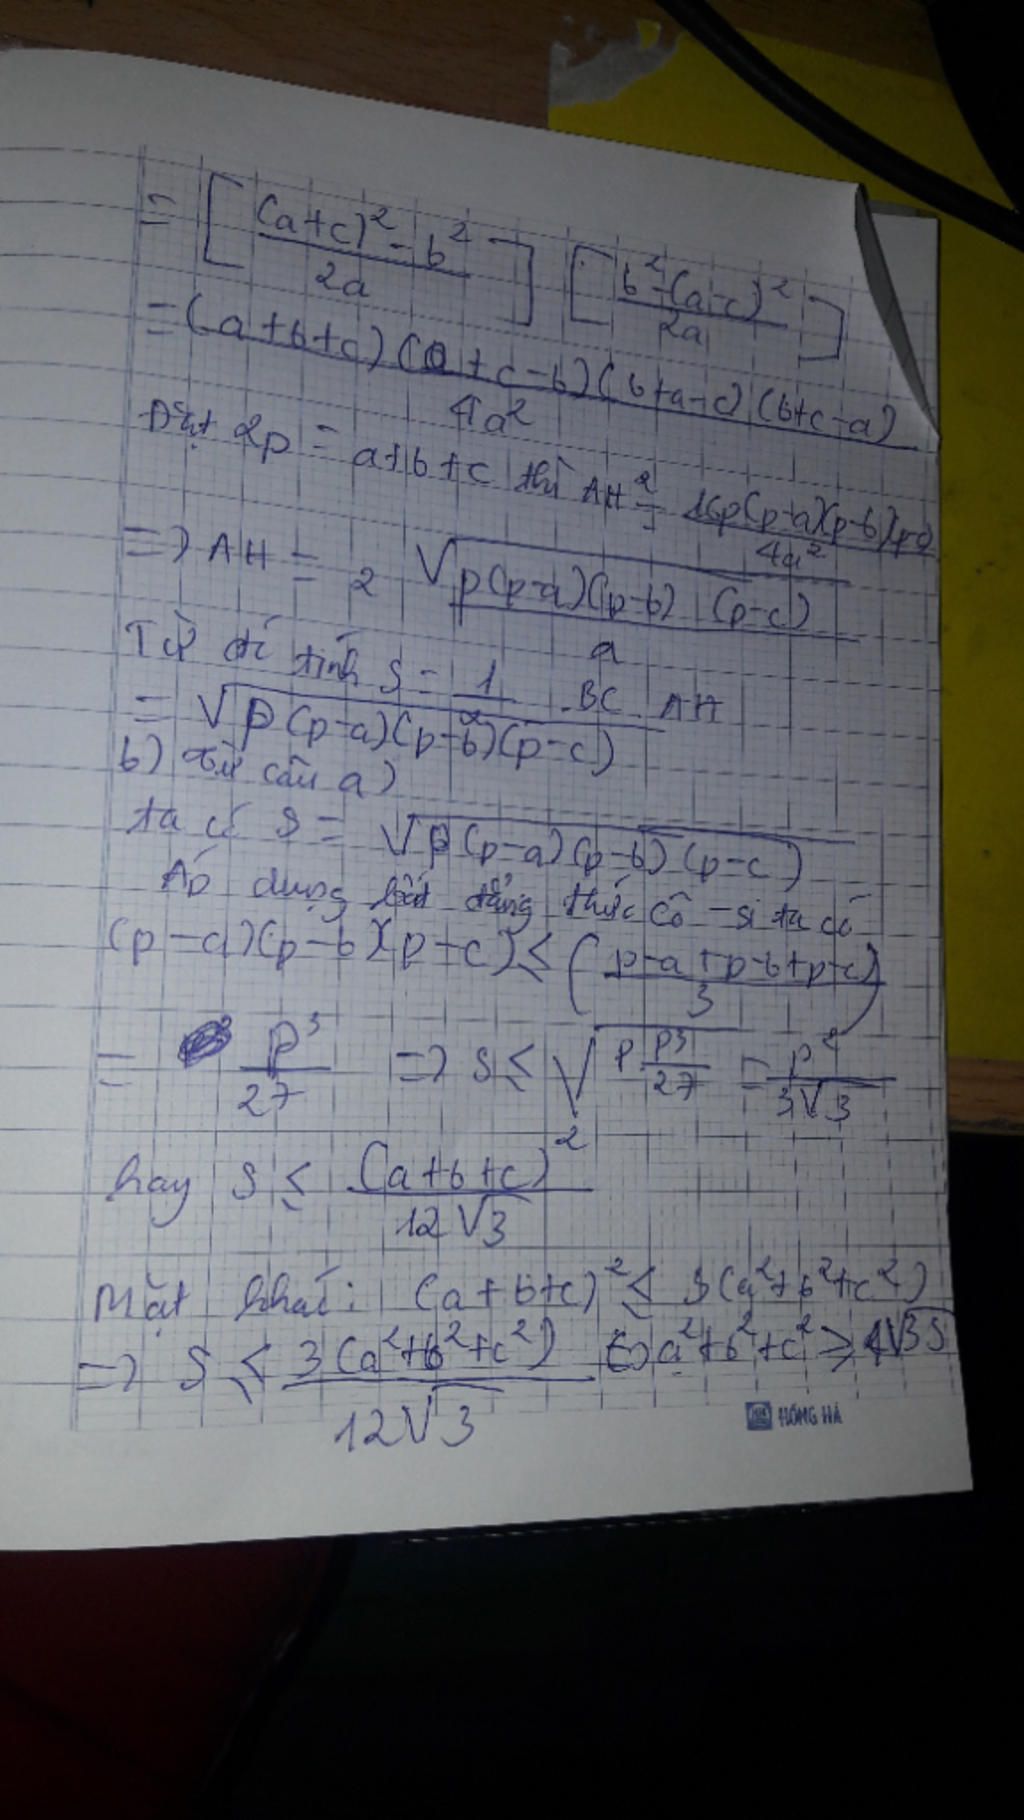 = [ ((a+c)² - b²)/(2a) ] [ (b² - (a-c)²)/(2a) ]
= ((a+b+c)(a+c-b)(b+a-c)(b+c-a))/(4a²)
Đặt 2p = a+b+c thì AH² = (16p(p-a)(p-b)(p-c))/(4a²)
=> AH = 2 √(p(p-a)(p-b)(p-c))/a
Từ đó tính S = 1/2 . BC . AH
= √(p(p-a)(p-b)(p-c))
b) từ câu a)
ta có S = √(p(p-a)(p-b)(p-c))
Áp dụng bất đẳng thức Cô-si ta có
(p-a)(p-b)(p-c) ≤ ((p-a+p-b+p-c)/3)
³
= p³/27 => S ≤ √(p p³/27) = p²/(3√3)
hay S ≤ (a+b+c)²/(12√3)
Mặt khác: (a+b+c)² ≤ 3(a²+b²+c²)
=> S ≤ 3(a²+b²+c²)/(12√3) <=> a²+b²+c² ≥ 4√3S
HỒNG HÀ